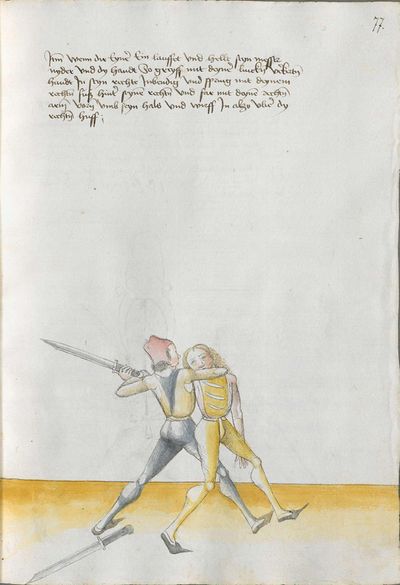 77
Jtm̄ Wenn dir Eyner Ein lauffet Und helt seyn messer
nyder Und dy handt So greyff mit deyner lincken
handt In seyn rechte Inbendig Und spring mit deynem
rechten fuß hinter seynē rechtn̄ Und far mit deynē rechtn̄
arm vorn Umb seyn hals Und wirff In also Uber dy
rechtn̄ huff